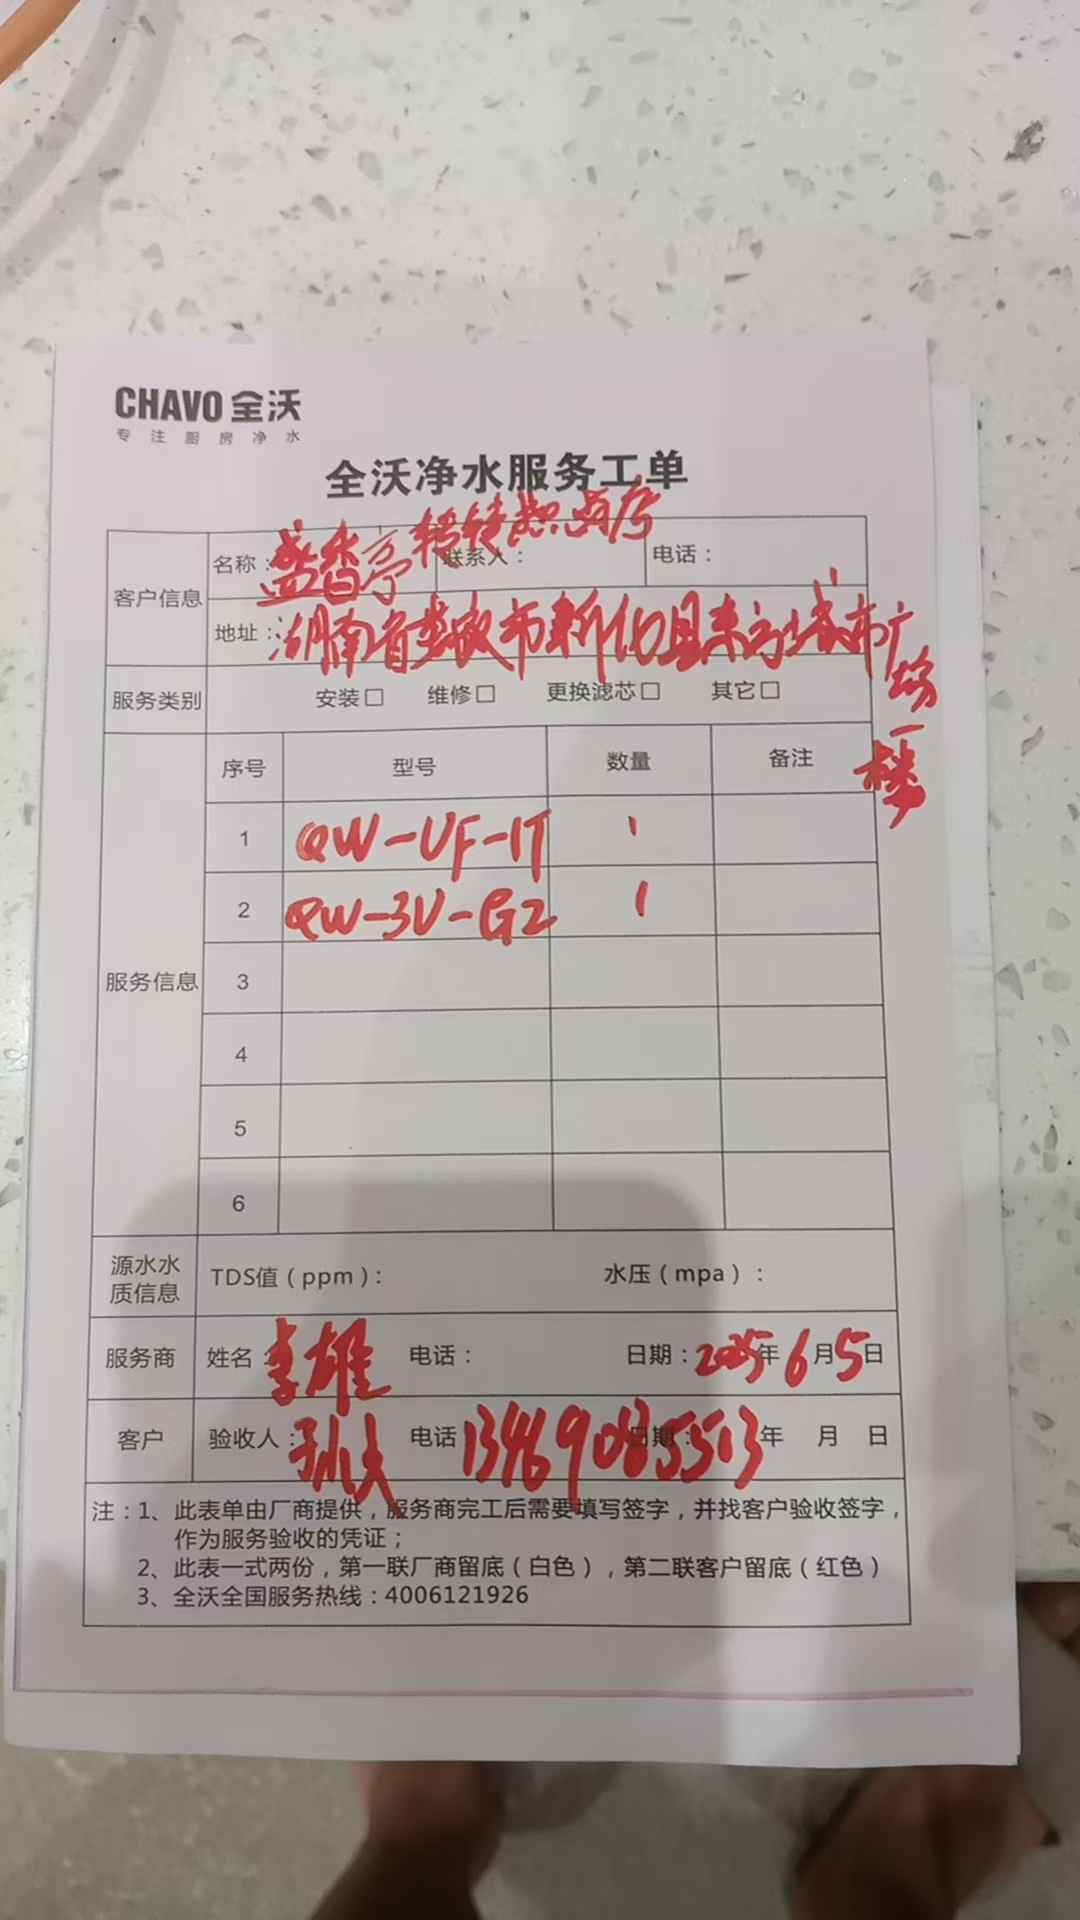 CHAVO 全沃
专注厨房净水
全沃净水服务工单
客户信息
名称：盛香亭转转热卤店
联系人：
电话：
地址：湖南省娄底市新化县东方城市广场一楼
服务类别
安装□ 维修□ 更换滤芯□ 其它□
服务信息
序号 型号 数量 备注
1 QW-UF-1T 1
2 QW-3V-G2 1
3
4
5
6
源水水质信息
TDS值（ppm）： 水压（mpa）：
服务商 姓名：李雄 电话： 日期：2025年6月5日
客户 验收人：孙 电话 13469085513 日期： 年 月 日
注：1、此表单由厂商提供，服务商完工后需要填写签字，并找客户验收签字，
作为服务验收的凭证；
2、此表一式两份，第一联厂商留底（白色），第二联客户留底（红色）
3、全沃全国服务热线：4006121926